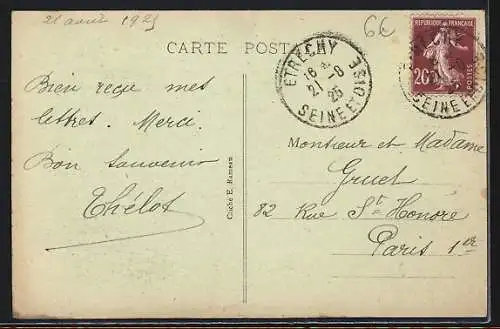 21 août 1925
6€
CARTE POSTALE
ETRECHY
16
21-8
25
SEINE ET OISE
REPUBLIQUE FRANÇAISE
20
POSTES
SEINE ET OISE
Bien reçu mes
lettres. Merci.
Bon souvenir
Thélot
Cliché E. Rameau
Monsieur et Madame
Gruet
82 Rue St Honoré
Paris 1er